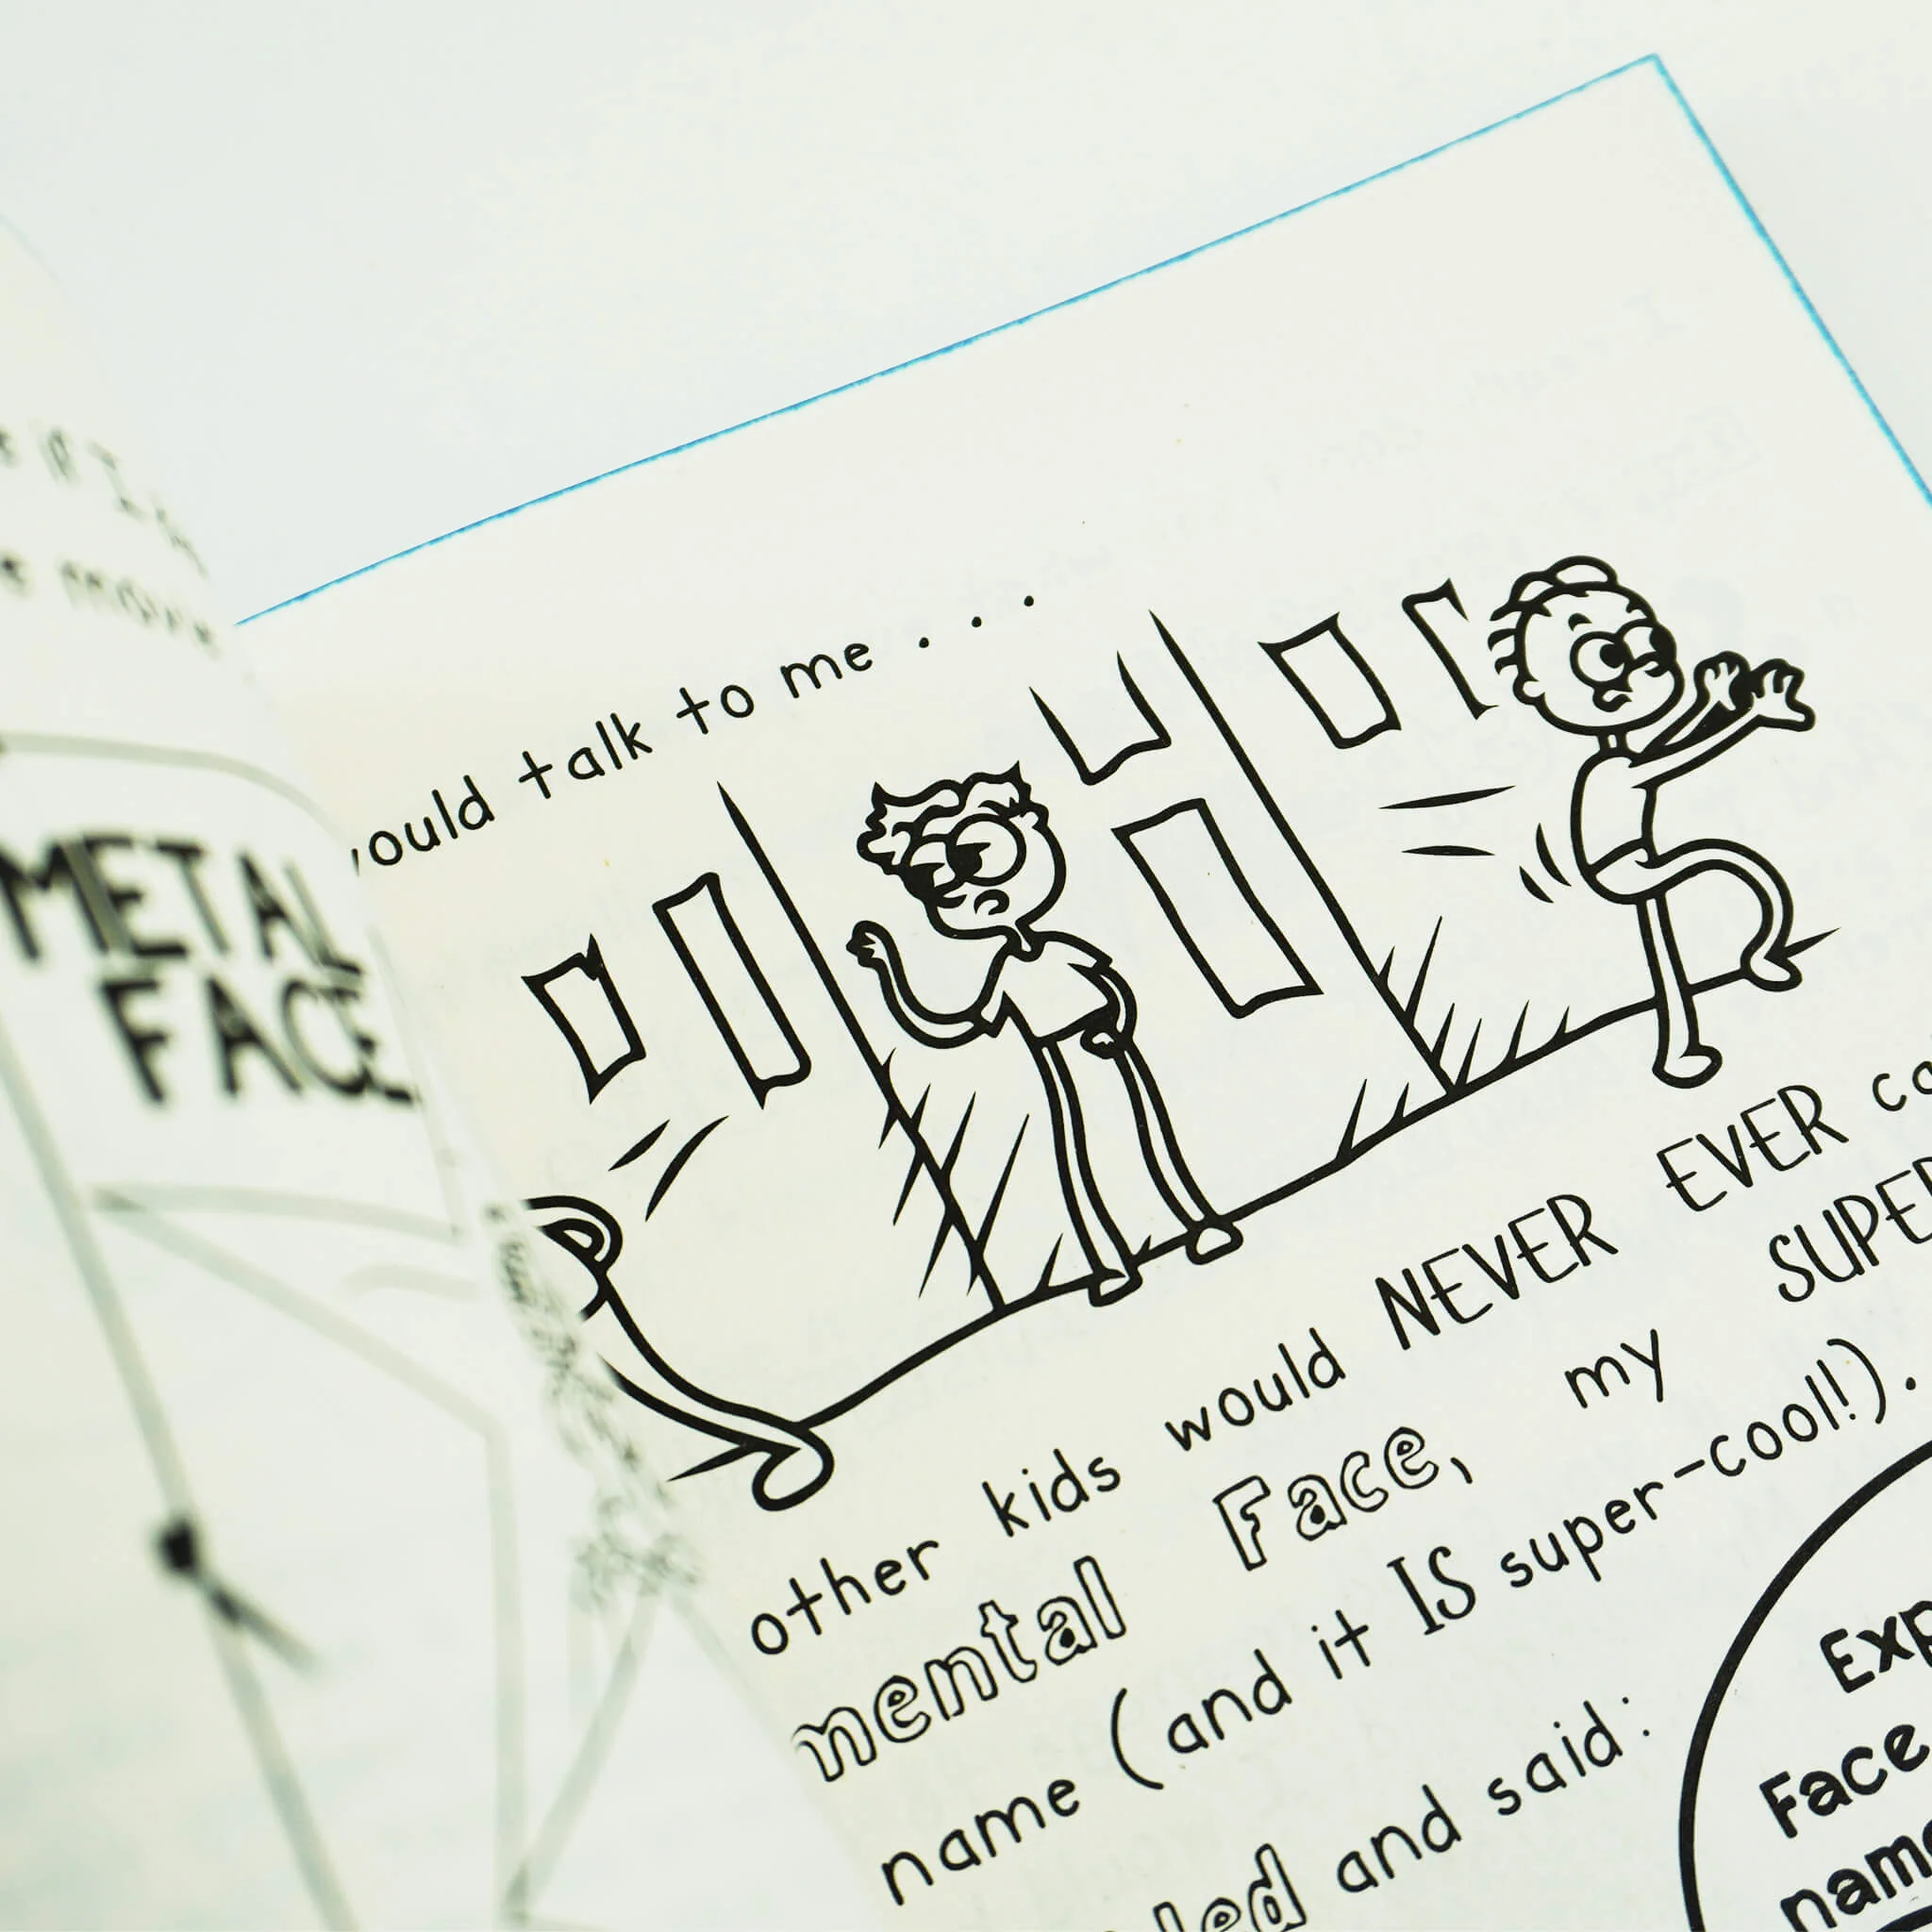 METAL
FACE
ould talk to me . . .
other kids would NEVER EVER
mental Face, my SUPER
name (and it IS super-cool!!).
and said:
Face